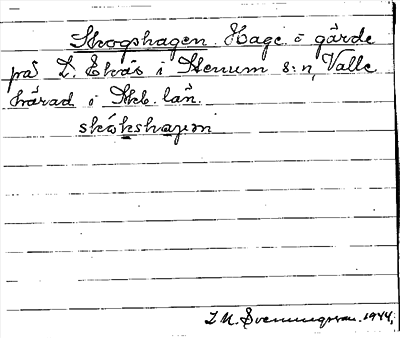 Skogshagen. Hage o gärde
på L. Ekås i Stenum s:n, Valle
härad i Skb. län.
skókshaɡen
1944.